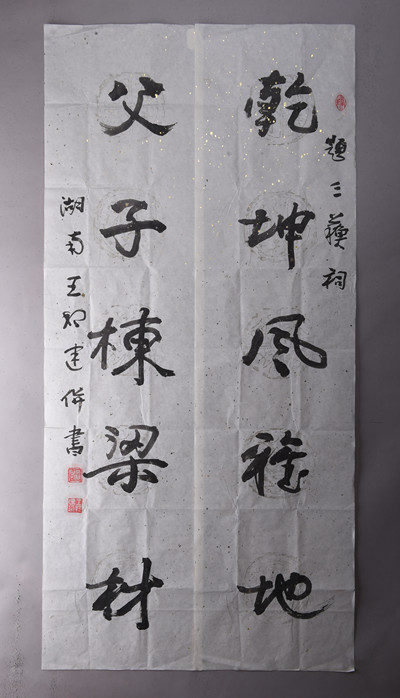 題三蘇祠
乾坤風雅地
父子棟梁材
湖南王 建併書